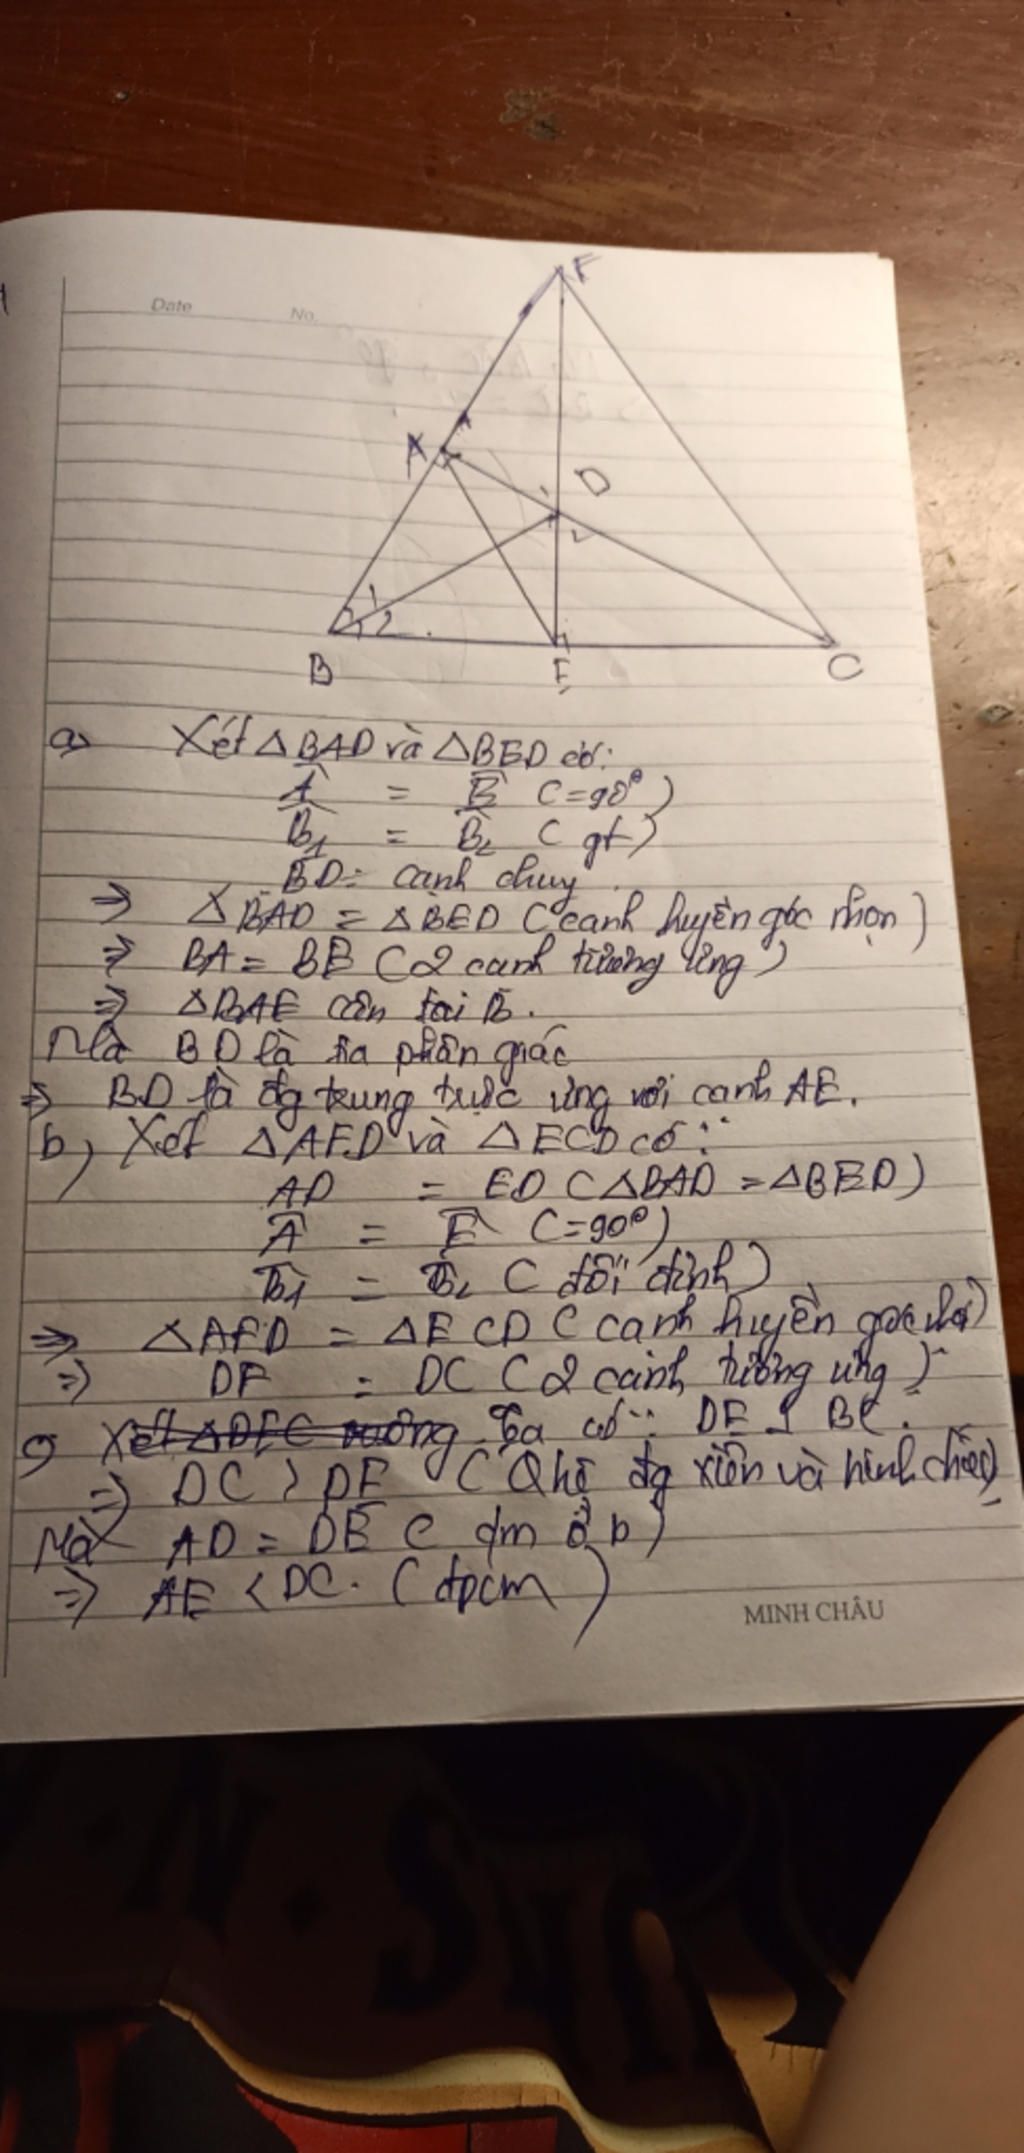 Date No.
F
A
D
1
2
1
2
B
E
C
a) Xét △BAD và △BED có:
Â = Ê (=90°)
B̂1 = B̂2 (gt)
BD: canh chuy
⇒ △BAD = △BED (canh huyền góc nhọn)
⇒ BA = BE (2 canh tương ứng)
⇒ △BAE cân tại B.
Mà BD là tia phân giác
⇒ BD là đg trung trực ứng với canh AE.
b) Xét △AFD và △ECD có:
AD = ED (△BAD = △BED)
Â = Ê (=90°)
D̂1 = D̂2 (đối đỉnh)
⇒ △AFD = △ECD (canh huyền góc)
⇒ DF = DC (2 cành tương ứng)
Xét △DEC vuông Ta có: DE ⊥ BC.
⇒ DC > DE (Qhệ đg xiên và hình chiếu)
Mà AD = DE (cm ở b)
⇒ AE < DC. (đpcm)
MINH CHÂU